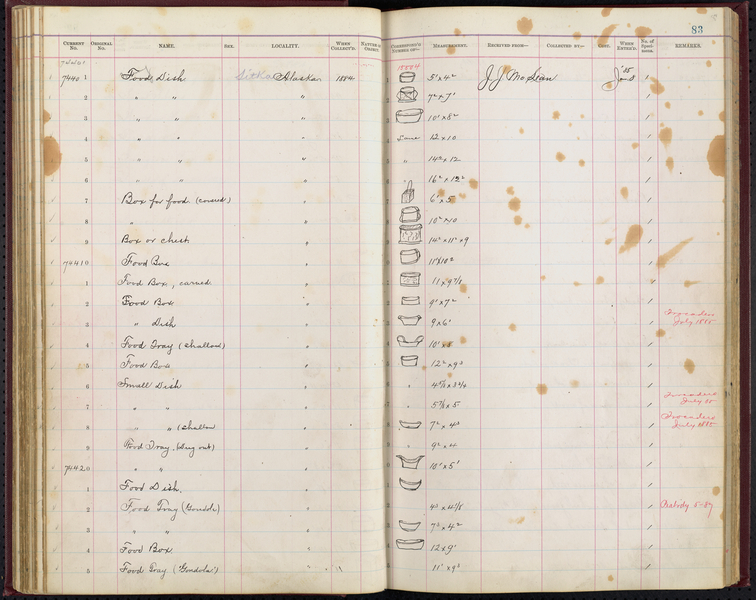 83
CURRENT No. ORIGINAL No. NAME. SEX. LOCALITY. WHEN COLLECT'D. NATURE OF OBJECT. CORRESPOND'G NUMBER OF— MEASUREMENT. RECEIVED FROM— COLLECTED BY— COST. WHEN ENTER'D. No. of Speci- mens. REMARKS.
74401 15004
7440 1 Food Dish Sitka Alaska 1884 5' x 4² J. J. McLean '85 Jan 8 1
2 " " " 7² x 7' 1
3 " " " 10' x 8² 1
4 " " " Same 12 x 10 1
5 " " " " 14² x 12 1
6 " " " " 16² x 12² 1
7 Box for food (carved) " 6' x 5 1
8 " " 10² x 10 1
9 Box or chest " 14² x 11² x 9 1
74410 Food Box " 11 x 10² 1
1 Food Box, carved " 11 x 9 1
2 Food Box " 9' x 7² 1
3 " Dish " 9 x 6' 1 Trocadero July 1885
4 Food Tray (shallow) " 10' x 5 1
5 Food Box " 12² x 9³ 1
6 Small Dish " " 1
7 " " " 5⅞ x 5 1 Trocadero July 85
8 " " (shallow " 7² x 4³ 1 Trocadero July 1885
9 Food Tray (Dug out) " " 9² x 4 1
74420 " " " 10' x 5' 1
1 Food Dish. " 1
2 Food Tray (Gondola) " 4³ x 4⅛ 1 Peabody 5-87
3 " " " 7² x 4² 1
4 Food Box " 12 x 9' 1
5 Food Tray ("Gondola") " " 11' x 9³ 1